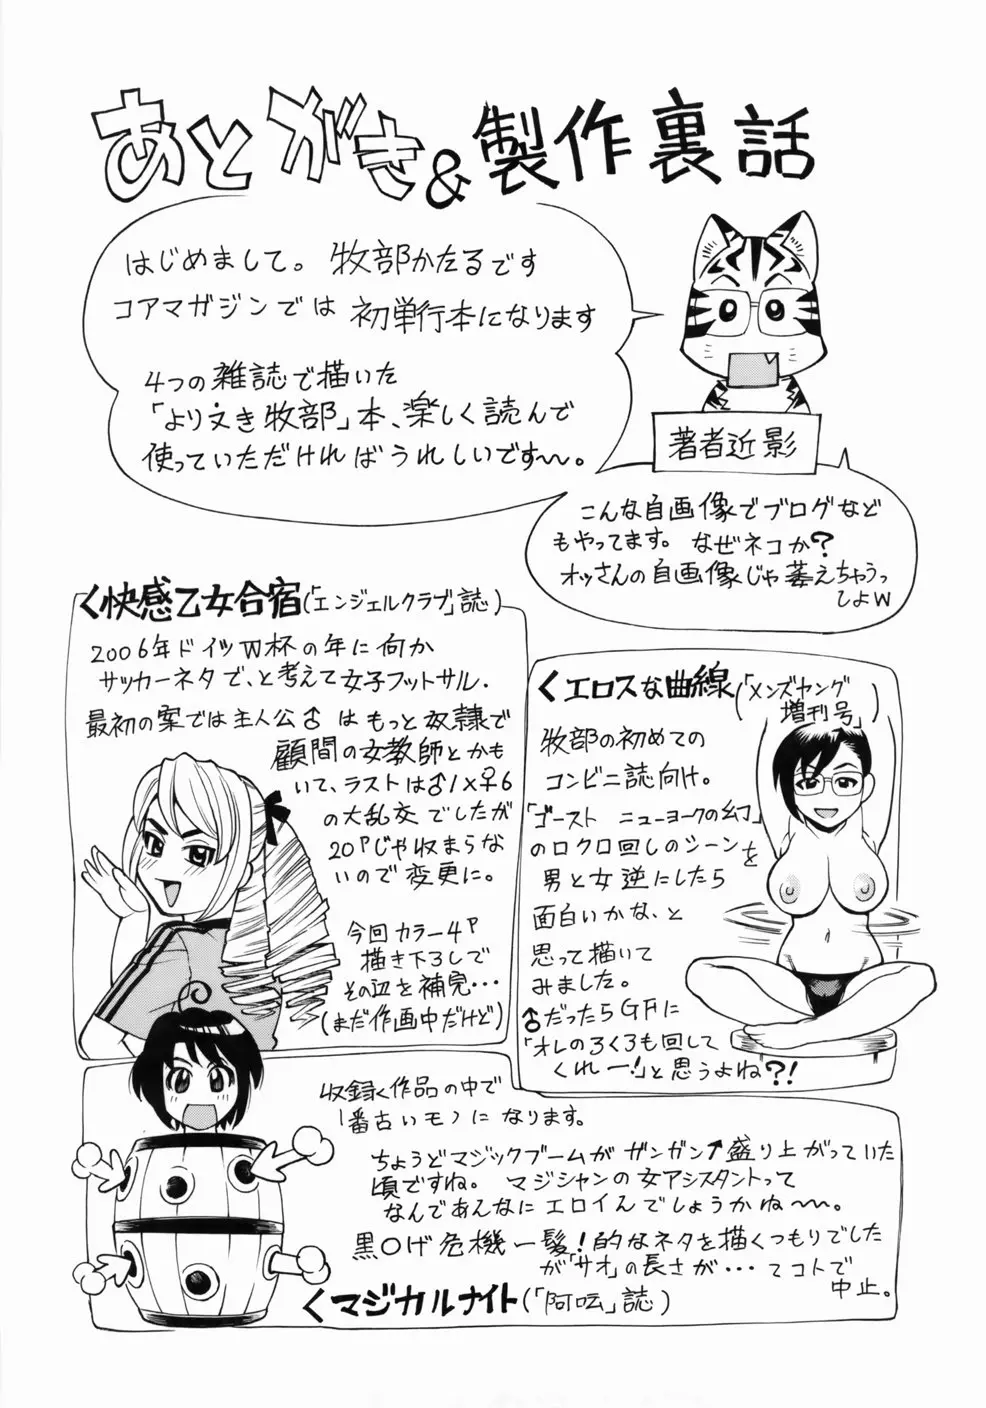 あとがき&製作裏話
はじめまして。牧部かたるです
コアマガジンでは初単行本になります
4つの雑誌で描いた
「よりぬき牧部」本、楽しく読んで
使っていただければうれしいです〜。
著者近影
こんな自画像でブログなど
もやってます。なぜネコか?
オッさんの自画像じゃ萎えちゃうっ
しょw
く快感乙女合宿(「エンジェルクラブ」誌)
2006年ドイツW杯の年に何か
サッカーネタで、と考えて女子フットサル.
最初の案では主人公♂はもっと奴隷で
顧問の女教師とかも
いて、ラストは♂1×♀6
の大乱交でしたが
20Pじゃ収まらな
いので変更に。
今回カラー4P
描き下ろしで
その辺を補完・・・
(まだ作画中だけど)
くエロスな曲線(「メンズヤング
増刊号」)
牧部の初めての
コンビニ誌向け。
「ゴースト ニューヨークの幻」
のロクロ回しのシーンを
男と女逆にしたら
面白いかな、と
思って描いて
みました。
♂だったらGFに
「オレのろくろも回して
くれー!」と思うよね?!
収録く作品の中で
1番古いモノになります。
ちょうどマジックブームがガンガン↑盛り上がっていた
頃ですね。マジシャンの女アシスタントって
なんであんなにエロイんでしょうかね〜〜。
黒○げ危機一髪!的なネタを描くつもりでした
が「サオ」の長さが・・・てコトで
中止。
くマジカルナイト(「阿吽」誌)